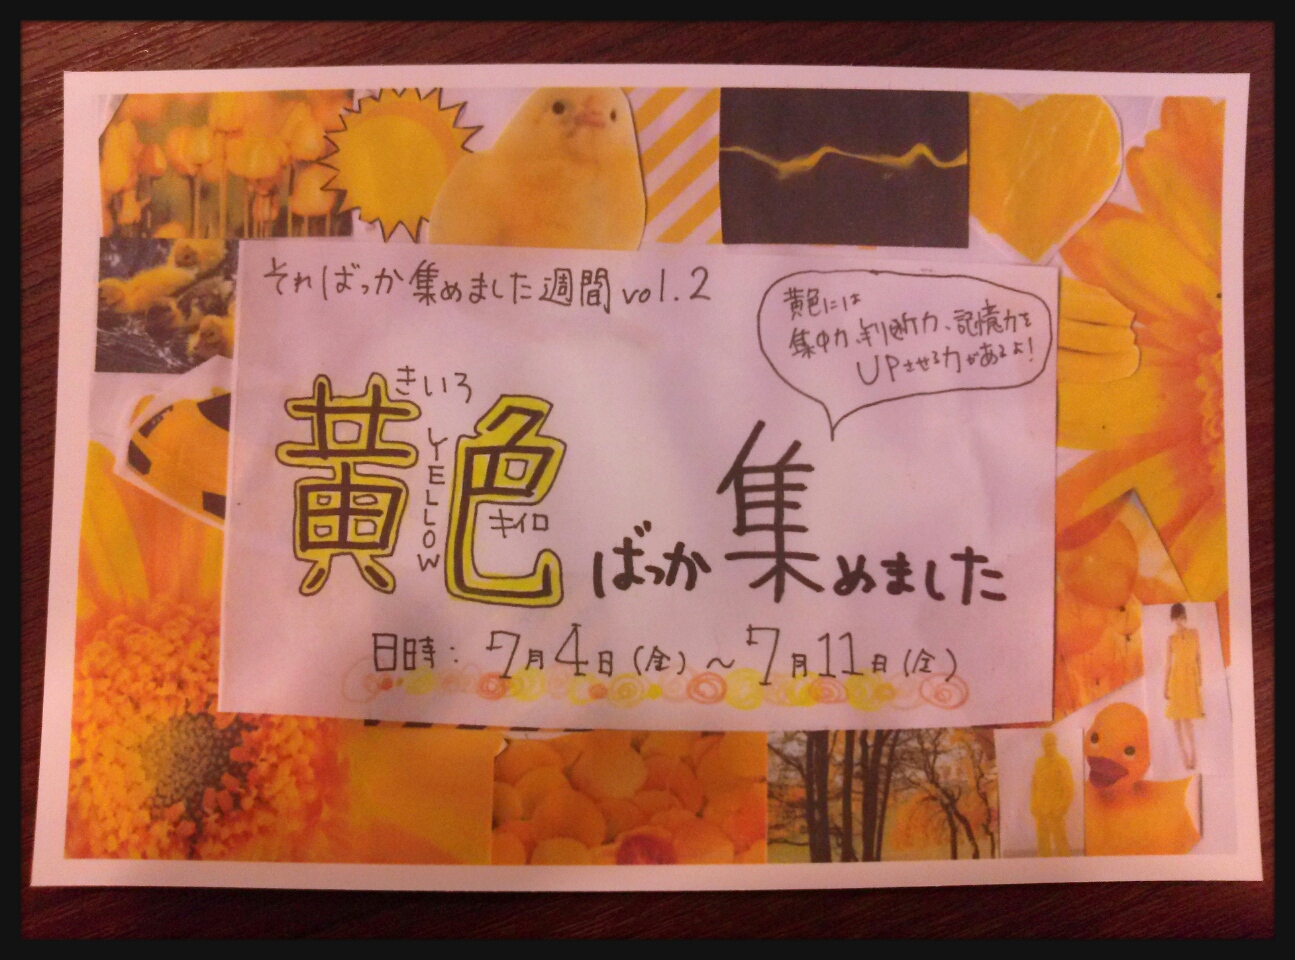 そればっか集めました週間 vol.2
黄色には
集中力、判断力、記憶力を
UPさせる力があるよ!
きいろ
YELLOW
キイロ
黄色ばっか集めました
日時: 7月4日(金)~7月11日(金)